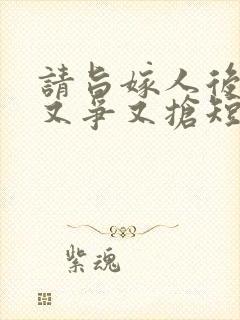 請旨嫁人後
又爭又搶短
紫魂